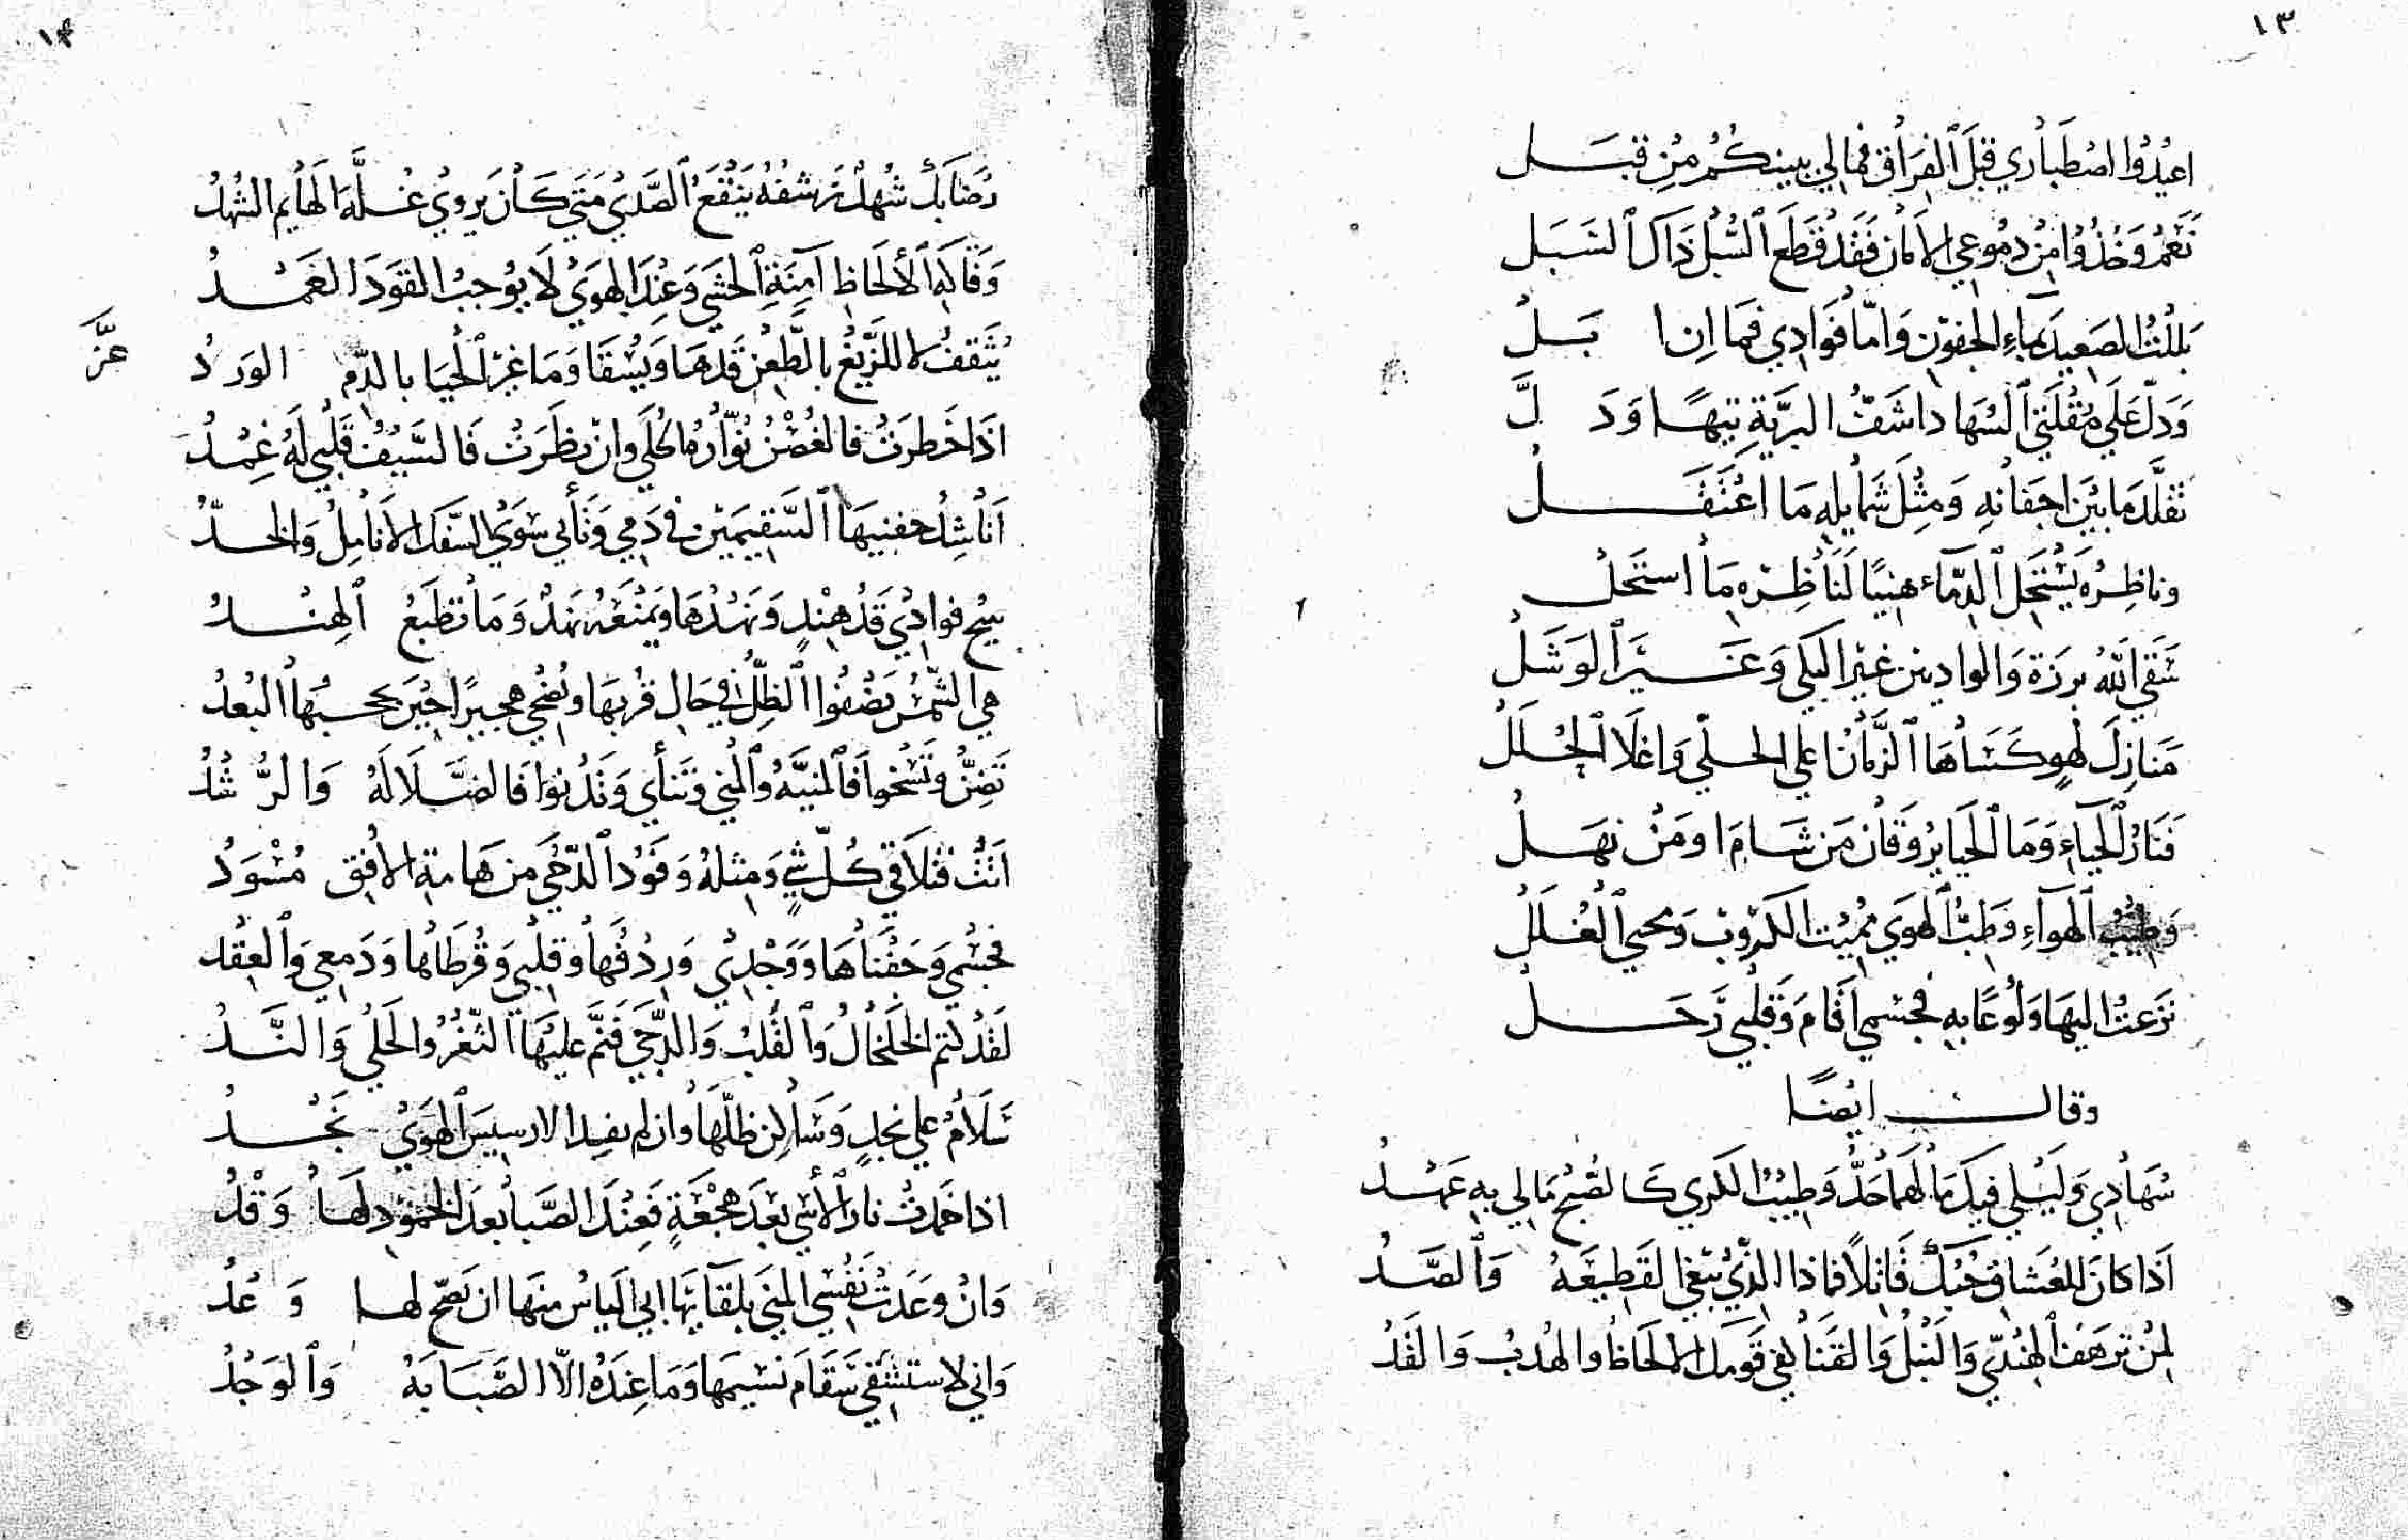 ١٣
اعيدوا اصطباري قبل الفراق فما لي ببينكم من قبل
نعم وخذوا من دموعي الامان فقد قطع السبل ذاك السبل
بللت الصعيد بماء الجفون واما فوادي فما ان ابل
ودل علي مقلتي السهاد اشف البرية تيها ودل
تقلد ما بين اجفانه ومثل شمايله ما اعتقل
وناظره يستحل الدماء هنيا لناظره ما استحل
سقي الله برزة والواديين غير البكي وغير الوشل
منازل لهو كساها الزمان اعلي الحلي واغلا الحلل
فنار الحياء وما الحيا يروقان من شام او من نهل
وطيب الهواء وطب الهوي مميت الكروب ومحيي الغلل
نزعت اليها ولوعا به فجسمي اقام وقلبي رحل
وقال ايضا
سهادي وليلي فيك ما لهما حد وطيب الكري كالصبح ما لي به عهد
اذا كان للعشاق حبك قاتلا فماذا الذي تبغي القطيعة والصد
لمن ترهف الهندي والنبل والقنا لفي قومك الالحاظ والهدب والقد
١٤
رضابك شهد رشفه ينقع الصدي متي كان يروي غلة الهايم الشهد
وفاكه الالحاظ آمنة الحشي وعند الهوي لا يوجب القود العمد
يثقف لا للزيغ بالطعن قدها ويسقا وما غير الحيا بالدم الورد
عز
اذا خطرت فالغصن نواره الحلي وان نظرت فالسيف قلبي له غمد
اناشد جفنيها السقيمين في دمي وتأبي سوي السفك الانامل والخد
يبيح فوادي قد هند ونهدها ويمنعه نهد وما تطبع الهند
هي الشمس يضفوا الظل في حال قربها ويضحي هجيرا حين يحجبها البعد
تضن وتسخوا فالمنية والمني وتنأي وتدنوا فالضلالة والرشد
اتت فتلاقي كل شي ومثله وفود الدجي من هامة الافق مسود
فجسمي وجفناها ووجدي وردفها وقلبي وقرطاها ودمعي والعقد
لقد كتم الخلخال والقلب والدجي فنم عليها الثغر والحلي والند
سلام علي نجد وساكن ظلها وان لم يفد الا رسيس الهوي نجد
اذا خمدت نار الأسي بعد هجعة فعند الصبا بعد الخمود لها وقد
وان وعدت نفسي المني بلقايها ابي الياس منها ان يصح لها وعد
واني لاستشفي سقام نسيمها وما عنده الا الصبابة والوجد